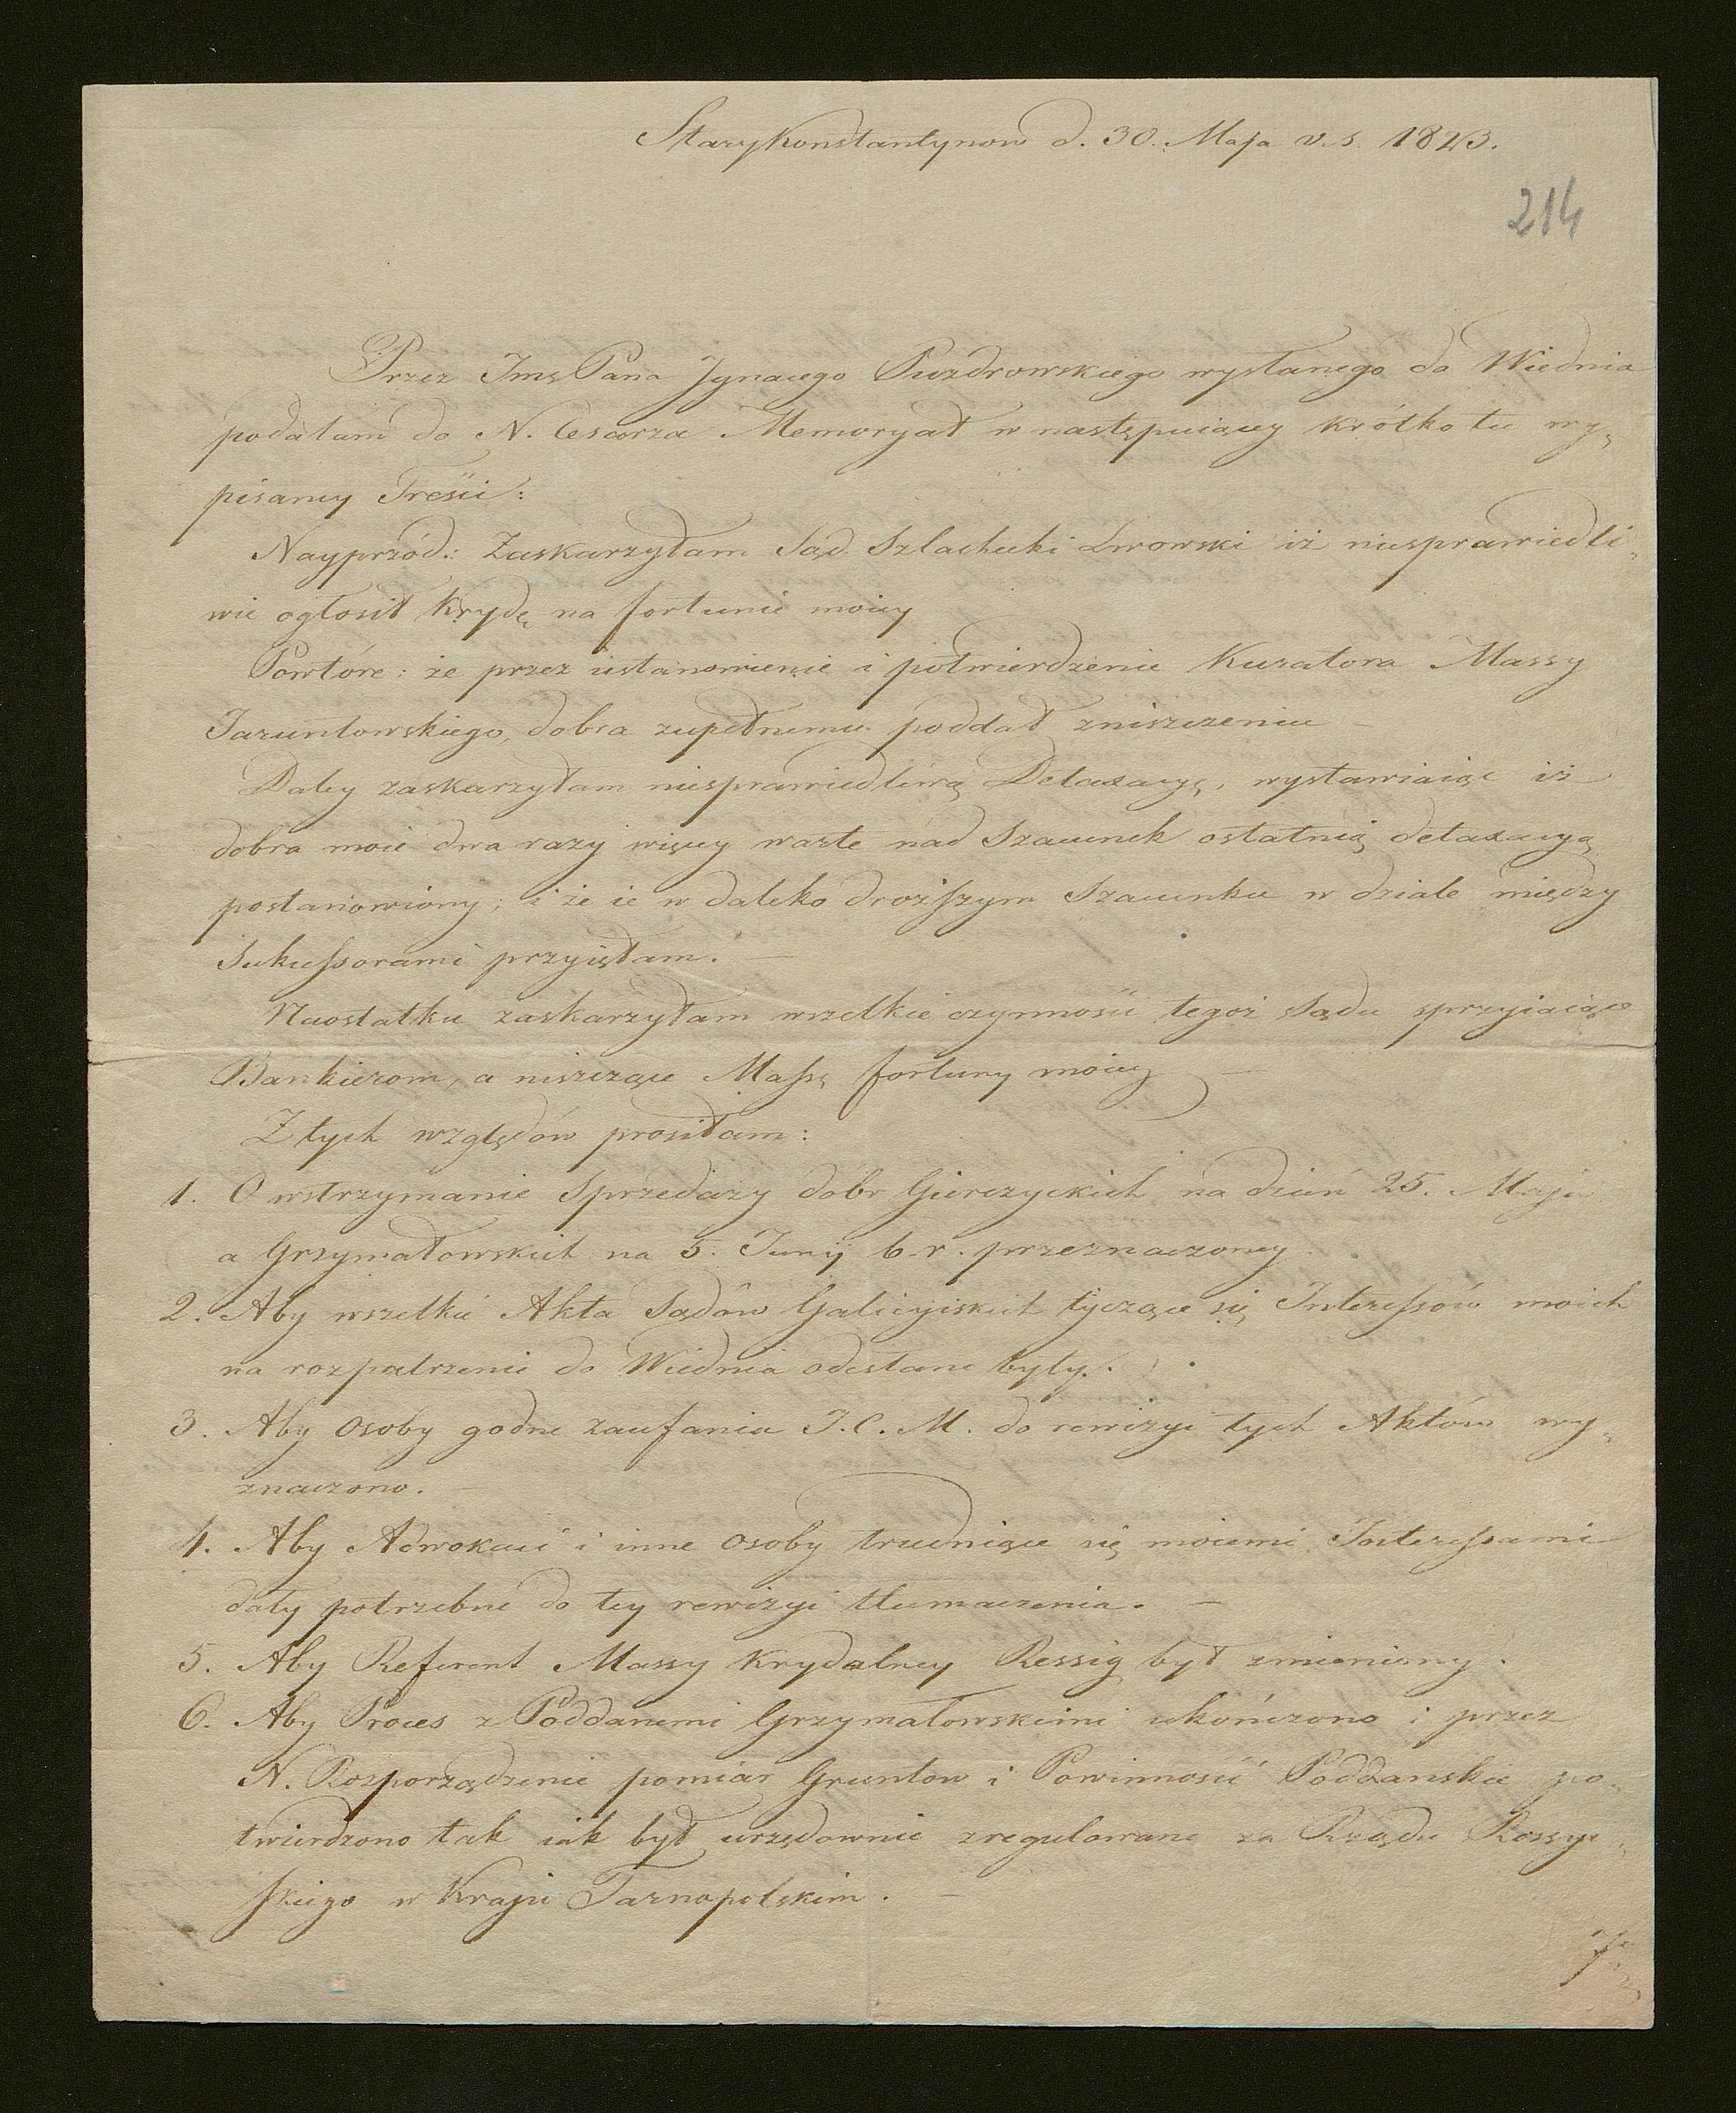 StaryKonstantynow d. 30. Maja v.s. 1823.
214
Przez Imę Pana Jgnacego Puzdrowskiego wysłanego do Wiednia
podałam do N. Cesarza Memoryał w następuiącey krótko tu wy„
pisaney Treści:
Nayprzód: Zaskarzyłam Sąd Szlachecki Lwowski iż niesprawiedli„
wie ogłosił Krydę na fortunie moiey
Powtóre: że przez ustanowienie i potwierdzenie Kuratora Massy
Jaruntowskiego, dobra zupełnemu poddał zniszczeniu —
Daley zaskarzyłam niesprawiedliwą Detaxacyę, wystawiaiąc iż
dobra moie dwa razy więcey warte nad Szacunek ostatnią detaxacyą
postanowiony; i że ie w daleko droższym Szacunku w dziale między
Sukussorami przyięłam. —
Naostatku zaskarzyłam wszelkie czynności tegoż Sądu sprzyiaiące
Bankierom, a niszczące Massę fortuny moiey —
Z tych względów prosiłam:
1. O wstrzymanie Sprzedaży dobr Gierczyckich na dzień 25. Maja
a Grzymałowskich na 5. Junij b.r. przeznaczoney.
2. Aby wszelkie Akta Sądów Galicyiskich tyczące się Interessów moich
na rozpatrzenie do Wiednia odesłane były.
3. Aby Osoby godne zaufania J.C.M. do rewizyi tych Aktów wy„
znaczono. —
4. Aby Adwokaci i inne Osoby trudniące się moiemi Interessami
dały potrzebne do tey rewizyi tłumaczenia. —
5. Aby Referent Massy Krydalney Ressig był zmieniony.
6. Aby Proces z Poddanemi Grzymałowskiemi ukończono i przez
N. Rozporządzenie pomiar Gruntow i Powinność Poddańskie po„
twierdzono tak iak był urzędownie zregulowane za Rządu Rossyi„
skiego w Kraju Tarnopolskim. —